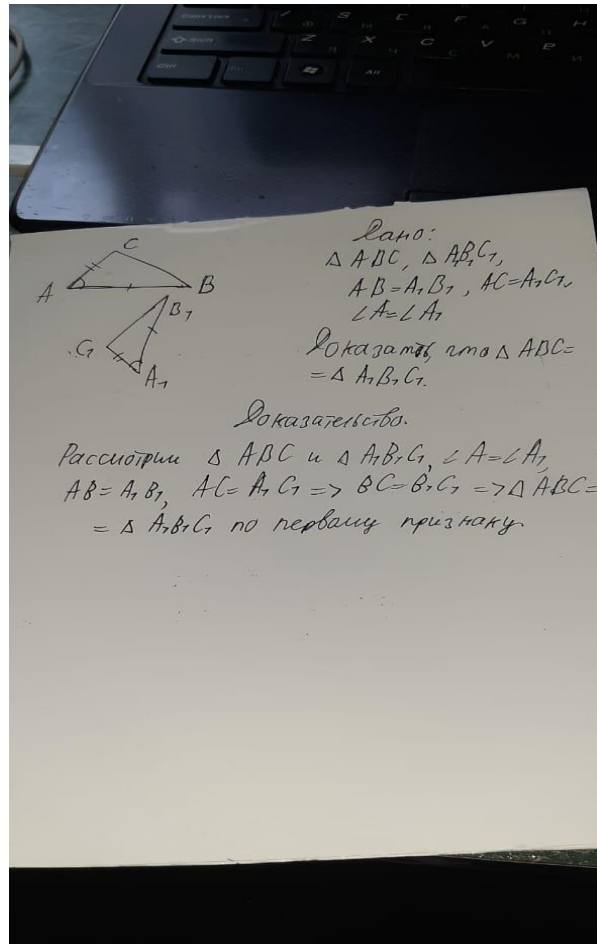 Дано:
C
Δ ABC, Δ AB₁C₁,
A
B
AB=A₁B₁, AC=A₁C₁,
∠A=∠A₁
B₁
C₁
A₁
Доказать, что Δ ABC=
= Δ A₁B₁C₁.
Доказательство.
Рассмотрим Δ ABC и Δ A₁B₁C₁, ∠A=∠A₁,
AB=A₁B₁, AC=A₁C₁ => BC=B₁C₁ => Δ ABC=
= Δ A₁B₁C₁ по первому признаку.